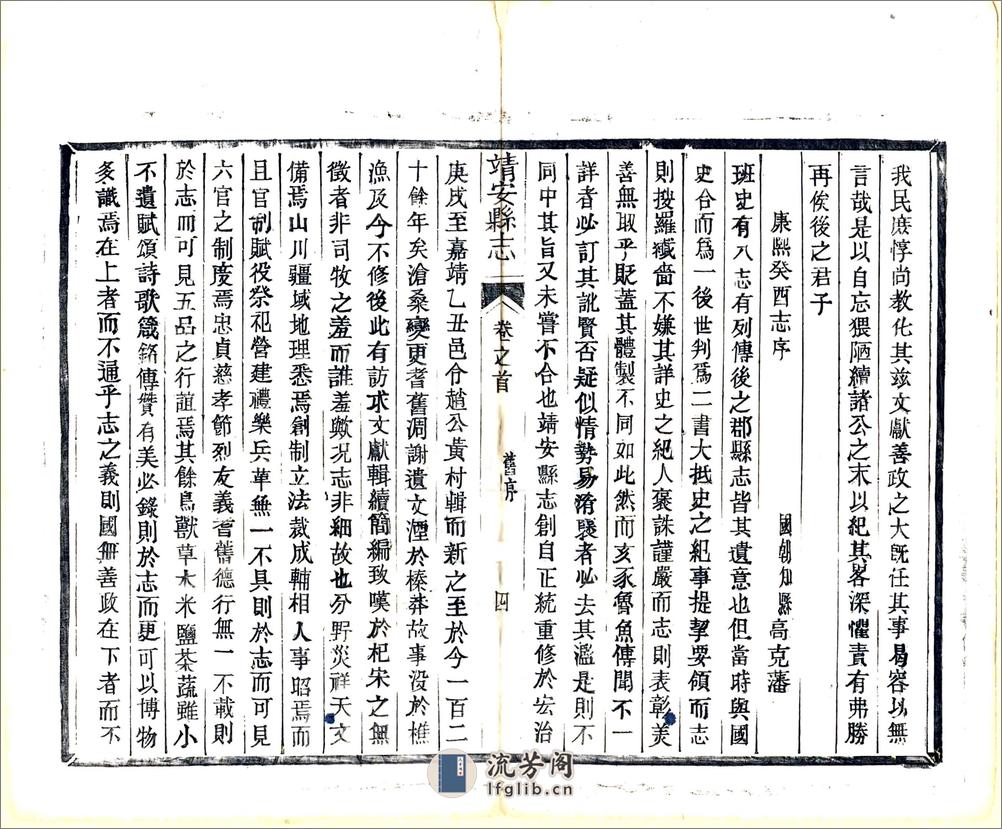 我民庶惇尚教化其玆文獻善政之大旣任其事曷容以無
言哉是以自忘猥陋續諸公之末以紀其畧深懼責有弗勝
再俟後之君子
康熙癸酉志序
國朝知縣高克藩
班史有八志有列傳後之郡縣志皆其遺意也但當時與國
史合而爲一後世判爲二書大抵史之紀事提挈要領而志
則搜羅蕆嗇不嫌其詳史之紀人褒誅謹嚴而志則表彰美
善無取乎貶蓋其體製不同如此然而亥豕魯魚傳聞不一
詳者必訂其訛賢否疑似情勢易淆襲者必去其濫是則不
同中其旨又未嘗不合也靖安縣志創自正統重修於宏治
靖安縣志
卷之首
舊序
四
庚戌至嘉靖乙丑邑令趙公黃村輯而新之至於今一百二
十餘年矣滄桑變更耆舊凋謝遺文湮於榛莽故事沒於樵
漁及今不修後此有訪求文獻輯續簡編致嘆於杞宋之無
徵者非司牧之羞而誰羞歟况志非細故也分野災祥天文
備焉山川疆域地理悉焉創制立法裁成輔相人事昭焉而
且官制賦役祭祀營建禮樂兵革無一不具則於志而可見
六官之制度焉忠貞慈孝節烈友義耆舊德行無一不載則
於志而可見五品之行誼焉其餘鳥獸草木米鹽茶蔬雖小
不遺賦頌詩歌箴銘傳贊有美必錄則於志而更可以博物
多識焉在上者而不通乎志之義則國無善政在下者而不
流芳阁
lfglib.cn